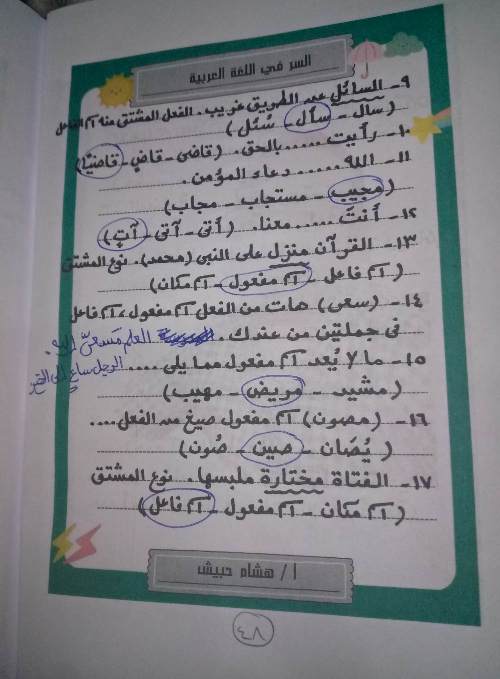 السر في اللغة العربية
٩- السائل عن الطريق غريب. الفعل المشتق منه اسم الفاعل
(سال - سأل - سُئل)
١٠- رأيت ..... بالحق. (قاضى - قاضٍ - قاضيًا)
١١- الله ..... دعاء المؤمن.
(مجيب - مستجاب - مجاب)
١٢- أنتَ ..... معنا. (أتى - آتى - آتٍ)
١٣- القرآن منزل على النبى (محمد). نوع المشتق
(اسم فاعل - اسم مفعول - اسم مكان)
١٤- (سعى) هات من الفعل اسم مفعول، اسم فاعل
فى جملتين من عندك. العلم مَسعىّ إليه.
الرجل ساعٍ إلى الخير
١٥- ما لا يُعد اسم مفعول مما يلى ....
(مشيد - مريض - مهيب)
١٦- (مصون) اسم مفعول صيغ من الفعل ....
(يُصَان - صين - صُون)
١٧- الفتاة مختارة ملبسها. نوع المشتق
(اسم مكان - اسم مفعول - اسم فاعل)
أ/ هشام حبيش
٤٨